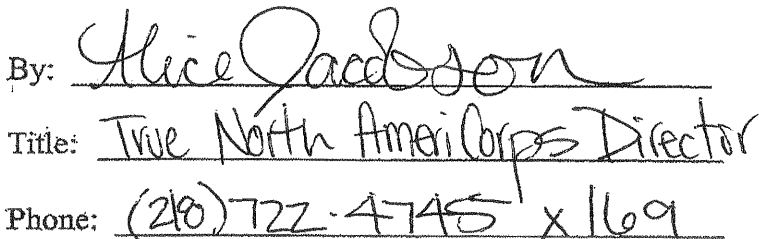 By: Alice Jacobson
Title: True North AmeriCorps Director
Phone: (218) 722-4745 x 169